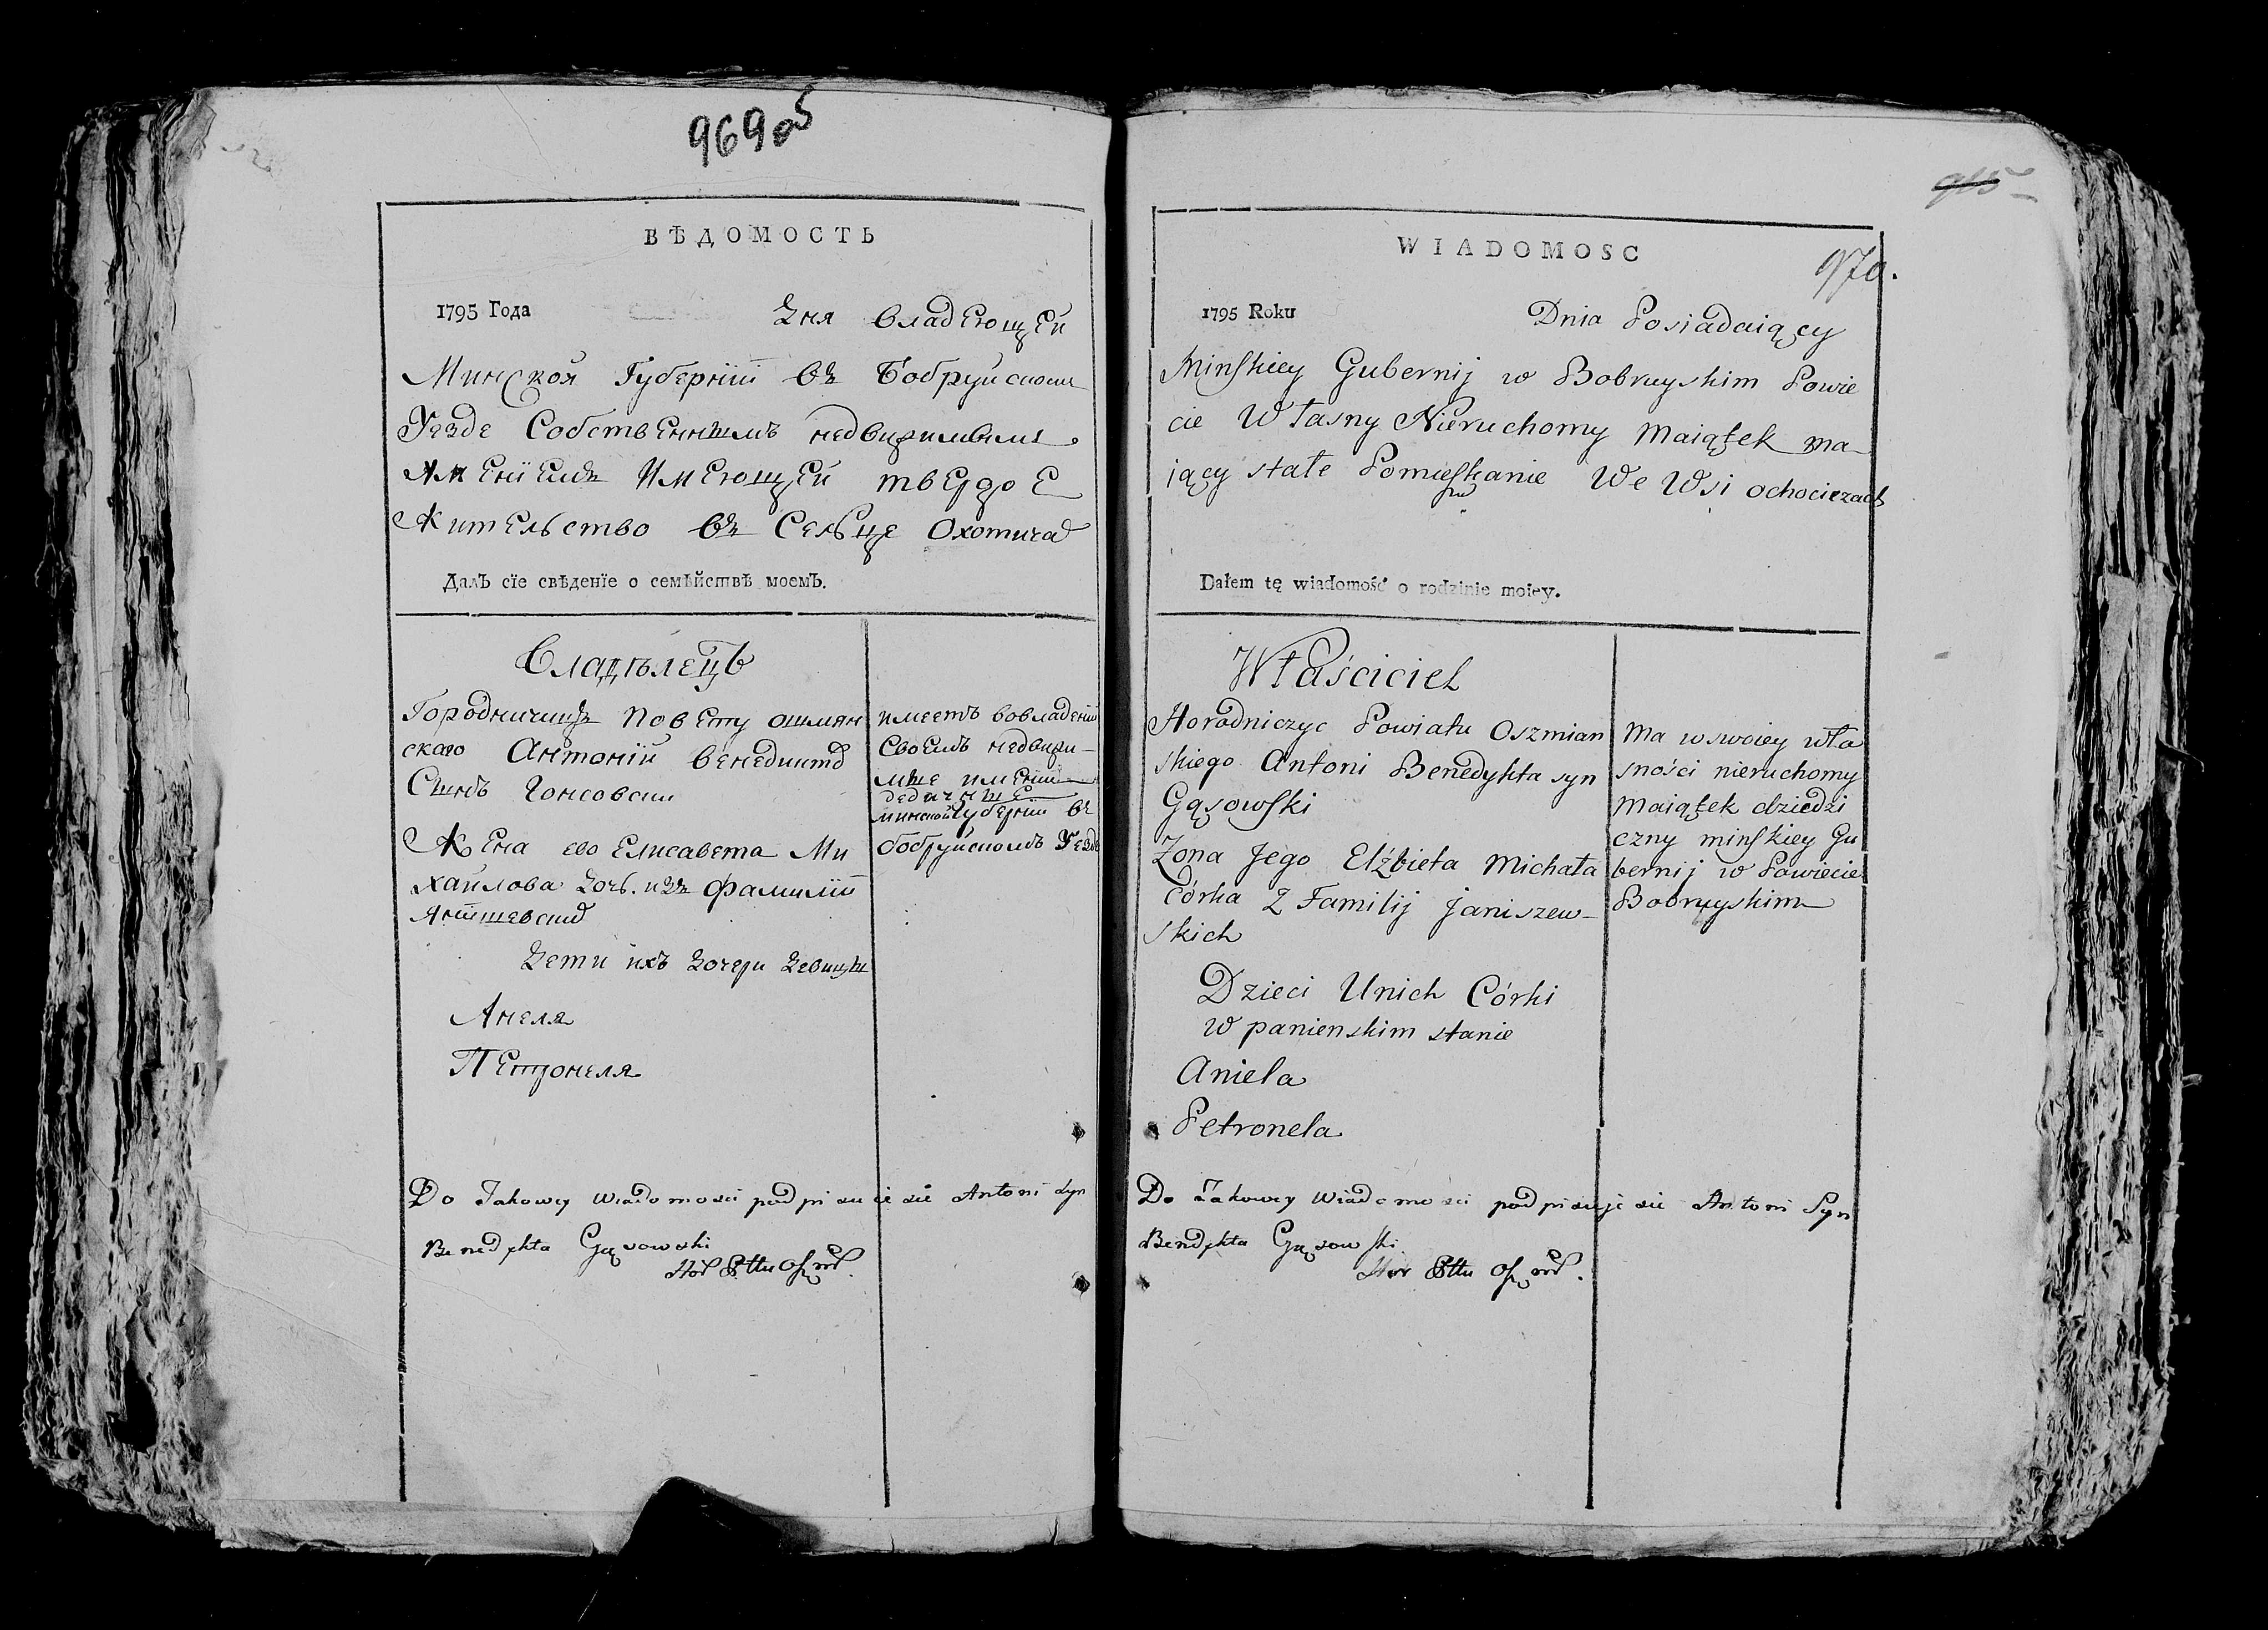 969об
ВѢДОМОСТЬ
1795 Года Дня владеющей
Минской Губернїи въ Бобруйском
Уезде Собственнымъ недвижимымъ
имениемъ имеющей твердое
жительство въ Сельце Охотича
Далъ сїе свѣденїе о семѣйствѣ моемъ.
Владѣлецъ
Городничицъ повету ошмян
ского Антонїй Венедикта
Сынъ Гонсовски
Жена ево Елисавета Ми
хаилова дочь изъ фамилїи
Янишевских
Дети ихъ дочери девицы
Анеля
Петронеля
имеетъ вовладенїи
своемъ недвижи-
мые имении
дедичные
минской губернїи въ
бобруйскомъ Уезде
Do Takowey Wiadomosci podpisuie sie Antoni Syn
Benedykta Gąsowski
Hor Pttu Osz
915
970.
WIADOMOSC
1795 Roku Dnia Posiadaiący
Minskiey Gubernij w Bobruyskim Powie
cie Własny Nieruchomy Maiątek ma
iący stałe Pomieszkanie We Wsi ochociczach
Dałem tę wiadomość o rodzinie moiey.
Właściciel
Horodniczyc Powiatu Oszmian
skiego Antoni Benedykta syn
Gąsowski
Zona Jego Elżbieta Michała
Córka Z Familij Janiszew-
skich
Dzieci Unich Córki
w panienskim stanie
Aniela
Petronela
Ma w swoiey wła
sności nieruchomy
Maiątek dziedzi
czny minskiey Gu
bernij w Powiecie
Bobruyskim
Do Takowey Wiadomosci podpisuje sie Antoni Syn
Bendykta Gąsowski
Hor Pttu Osz